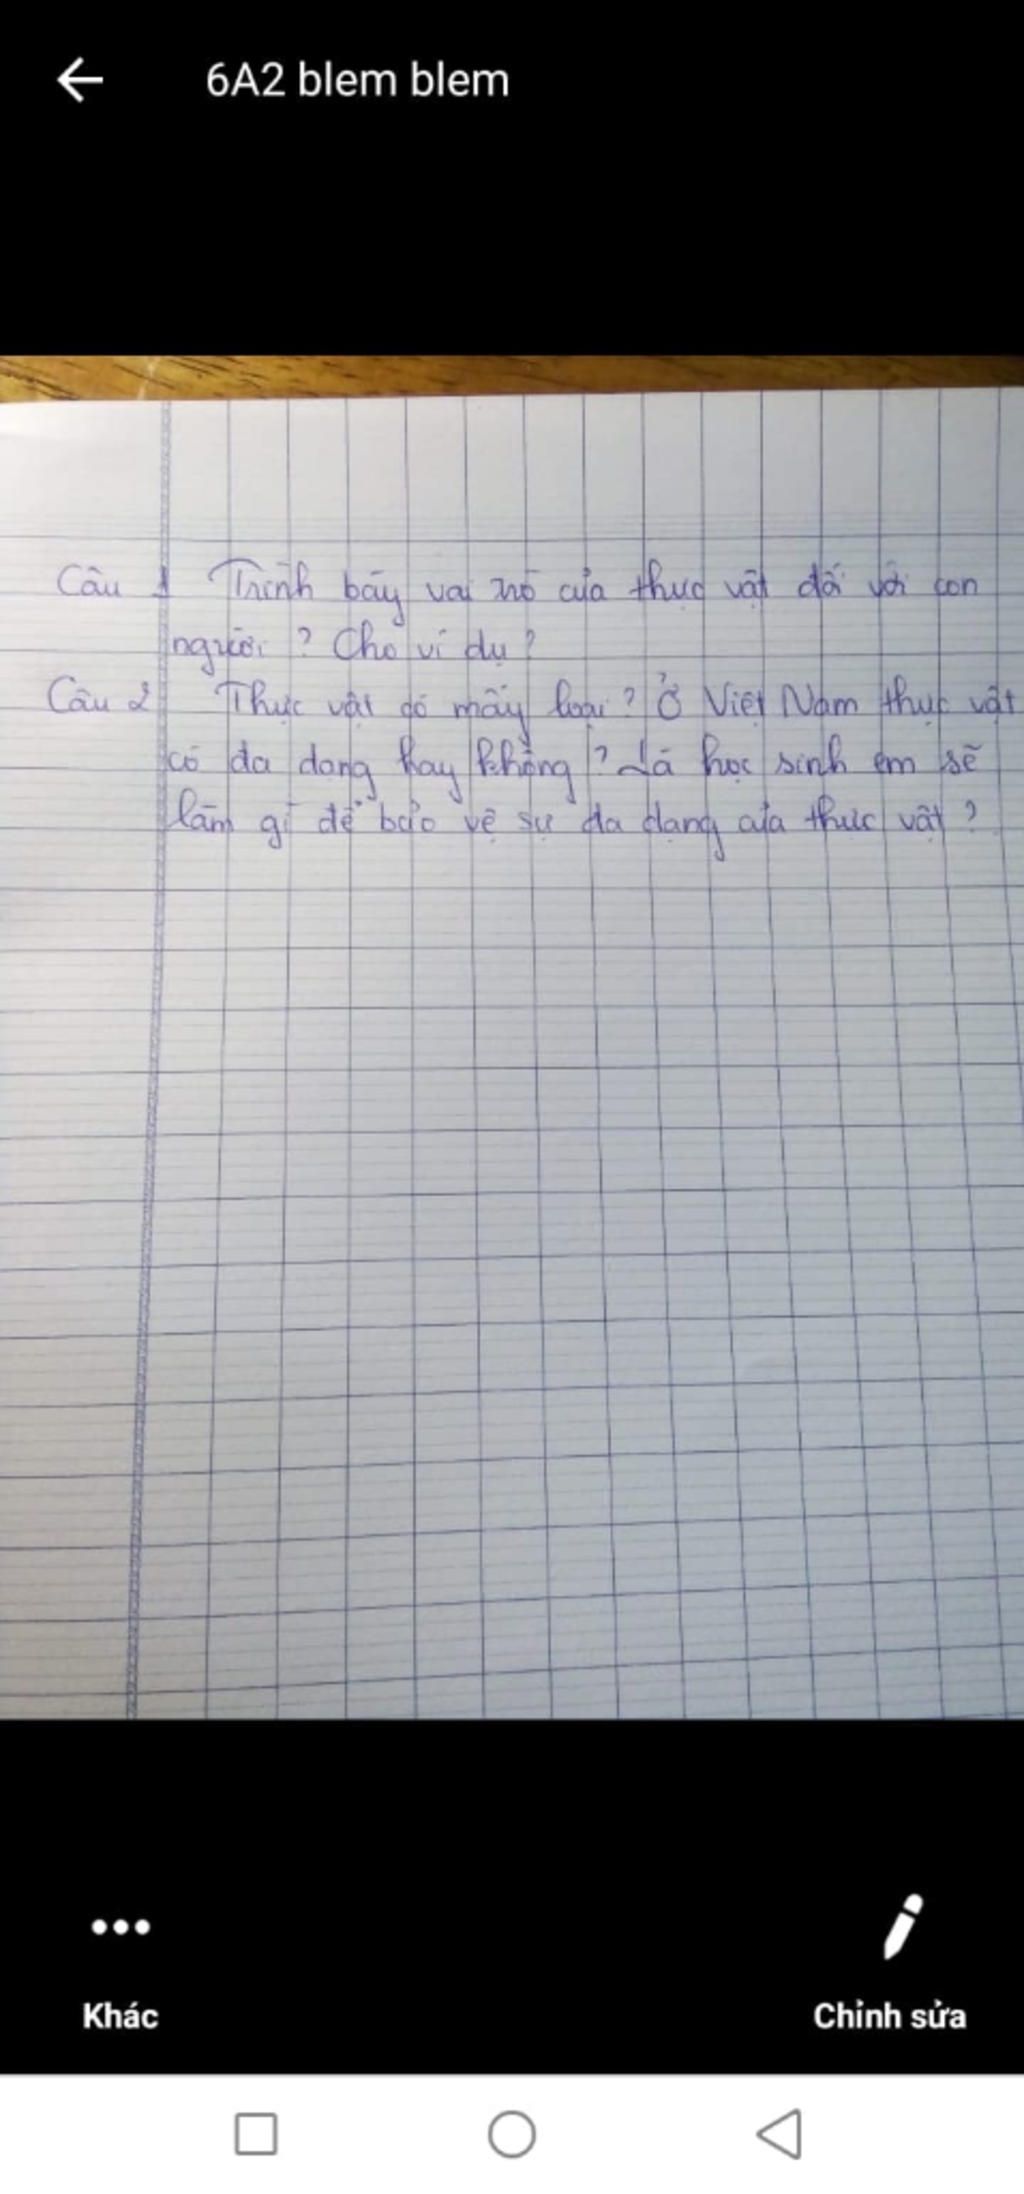 6A2 blem blem
Câu 1 Trình bày vai trò của thực vật đối với con
người? Cho ví dụ?
Câu 2 Thực vật có mấy loại? Ở Việt Nam thực vật
có đa dạng hay không? Là học sinh em sẽ
làm gì để bảo vệ sự đa dạng của thực vật?
Khác
Chỉnh sửa